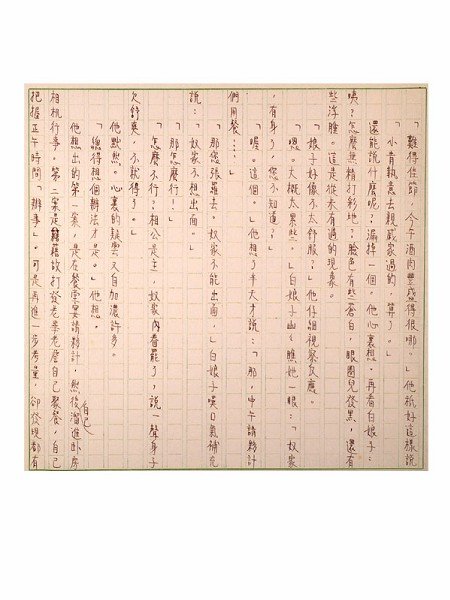 「難得佳節，今午酒肉豐盛得很哪。」他祇好這樣說
「小青執意去親戚家過的，算了。」
還能說什麼呢？漏掉一個。他心裏想。再看白娘子：
咦？怎麼無精打彩地？臉色有些蒼白，眼圈兒發黑，還有
些浮腫。這是從未有過的現象。
「娘子好像不太舒服？」他仔細視察反應。
「嗯。大概太累些。」白娘子幽幽瞧她一眼：「奴家
，有身了，您不知道？」
「喔。這個。」他想了半天才說：「那，中午請夥計
們用餐……」
「那您張羅去。奴家不能出面，」白娘子嘆口氣補充
說：「奴家不想出面。」
「那怎麼行！」
「怎麼不行？相公是主，奴家內眷罷了，說一聲身子
欠舒爽，不就得了。」
他默然。心裏的疑雲又自加濃許多。
「總得想個辦法才是。」他想。
他想出的第一案，是在餐堂宴請夥計，然後自己溜進臥房
相機行事。第二案是藉故打發老葉老詹自己聚餐，自己
把握正午時間「辦事」，可是再進一步考量，卻發現都有